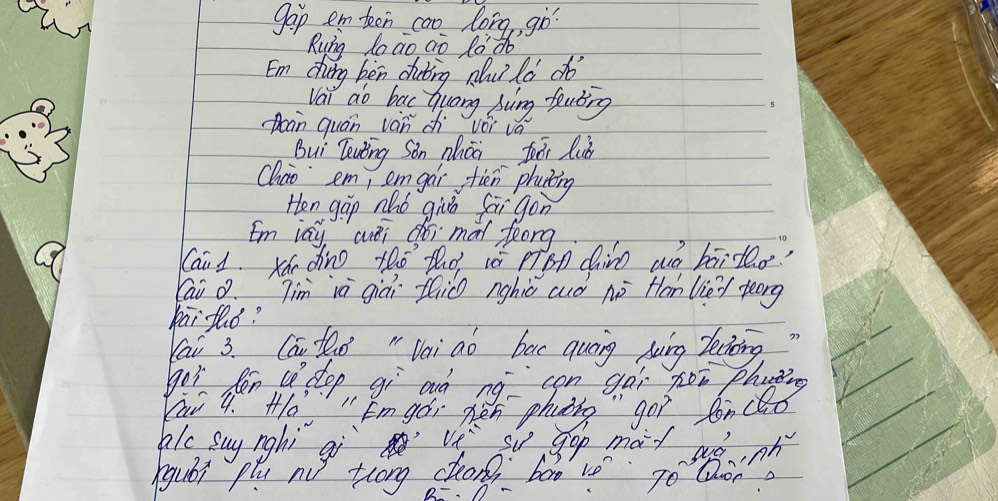 gặp em trên cao lộng gió
Rừng lạ ào ào lá đỏ
Em đứng bên đường như lá đỏ
Vai áo bạc quàng súng trường
Đoàn quân vẫn đi vội vã
Bụi Trường Sơn nhòa trời lửa
Chào em, em gái tiền phương
Hẹn gặp nhé giữa Sài gòn
Em vẫy cười đôi mắt trong.
Câu 1. Xác định thể thơ, và PTBĐ chính của bài thơ?
Câu 2. Tìm và giải thích nghĩa của từ Hán Việt trong
bài thơ?
Câu 3. Câu thơ "Vai áo bạc quàng súng trường"
gợi lên vẻ đẹp gì của ng con gái tiền phương
Câu 4. H/a "Em gái tiền phương" gợi lên cho
a/c suy nghĩ gì về sự góp mặt của nh
người phụ nữ trong chiến bảo vệ Tổ Quốc?